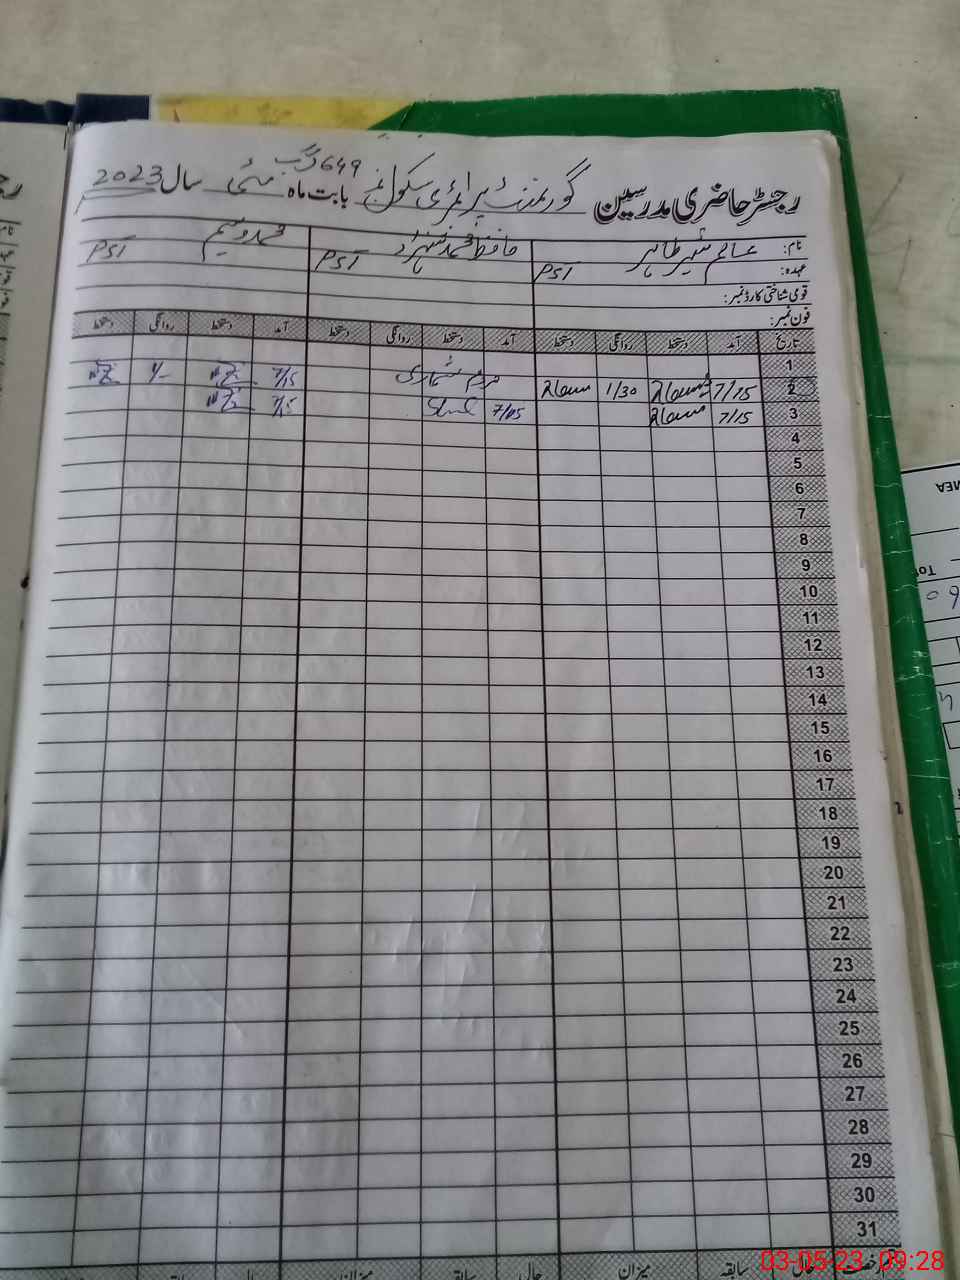 رجسٹر حاضری مدرسین گورنمنٹ پرائمری سکول نمبر 649 گ ب بابت ماہ مئی سال 2023
نام: عالم شیر طاہر حافظ محمد شہزاد محمد وسیم
عہدہ: PST PST PST
قومی شناختی کارڈ نمبر:
فون نمبر:
تاریخ آمد دستخط روانگی دستخط آمد دستخط روانگی دستخط آمد دستخط روانگی دستخط
1
2 7/15 1/30 مردم شماری 7/15 1/-
3 7/15 7/15 7/15
4
5
6
7
8
9
10
11
12
13
14
15
16
17
18
19
20
21
22
23
24
25
26
27
28
29
30
31
حال سابقہ میزان حال سابقہ میزان حال سابقہ
03-05-23 09:28
MEA